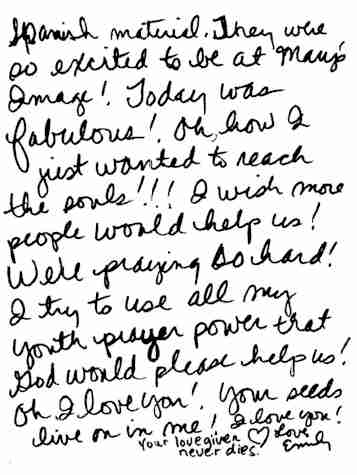 Spanish material. They were
so excited to be at Mary's
Image! Today was
fabulous! Oh, how I
just wanted to reach
the souls!!! I wish more
people would help us!
We're praying so hard!
I try to use all my
youth prayer power that
God would please help us!
Oh I love you! Your seeds
live on in me! I love you!
Your love given ♡ Love
never dies. Emily